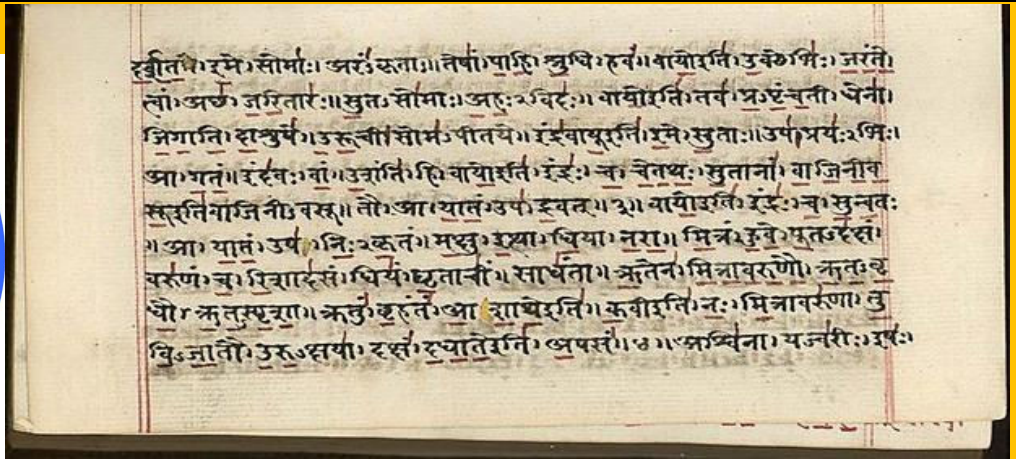 इमे। सोमाः। अरंऽकृताः॥तेषां। पाहि। श्रुधि। हवं॥वायोइति। उक्थेभिः। जरंते।
त्वां। अछ। जरितारः॥सुतऽसोमाः। अहःऽविदः॥वायोइति। तव। प्रऽपृंचती। धेना।
जिगाति। दाशुषे॥उरूची। सोमऽपीतये॥इंद्रवायूइति। इमे। सुताः॥उप। प्रयःऽभिः।
आ। गतं॥इंदवः। वां। उशंति। हि। वायोइति। इंद्रः। च। चेतथः। सुतानां। वाजिनीव
सूइतिवाजिनीऽवसू॥तौ। आ। यातं। उप। द्रवत्॥३॥वायोइति। इंद्रः। च। सुन्वतः
॥आ। यातं। उप। निःऽकृतं॥मक्षु। इत्था। धिया। नरा॥मित्रं। हुवे। पूतऽदक्षं।
वरुणं। च। रिशादसं। धियं। घृताचीं। साधंता॥ऋतेन। मित्रावरुणौ। ऋतऽवृ
धौ। ऋतऽस्पृशा॥क्रतुं। बृहंतं। आशाथेइति॥कवीइति। नः। मित्रावरुणा। तु
विऽजातौ। उरुऽक्षया। दक्षं। दधातेइति। अपसं॥४॥अश्विना। यज्वरीः। इषः।